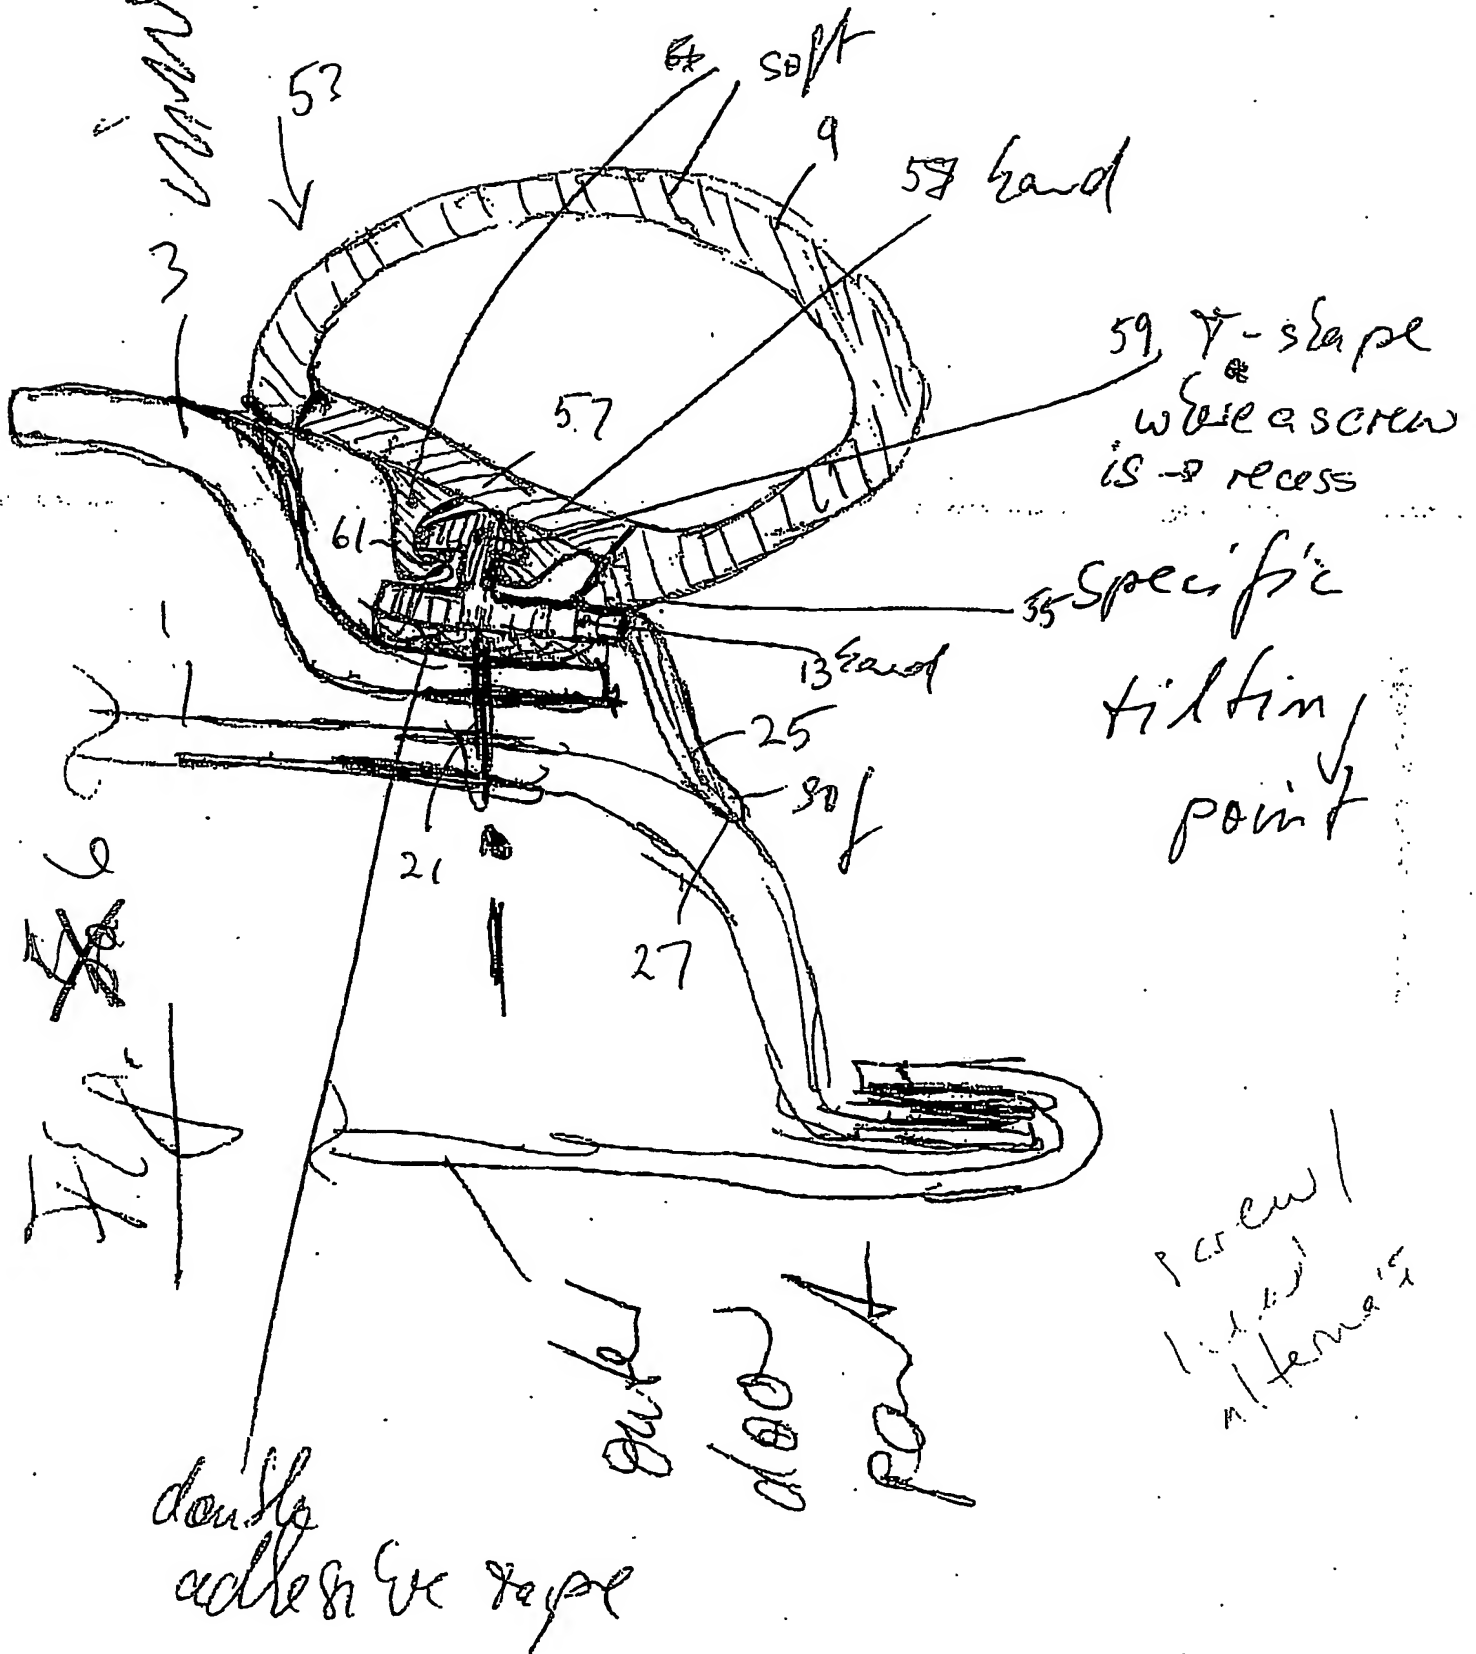 53
soft
9
58 hard
3
59 T-shape
where a screw
is → recess
57
61
55 specific
tilting
point
13 hard
1
25
sof
21
27
6
FIG.
outer
door
part
screw /
double
adhesive tape